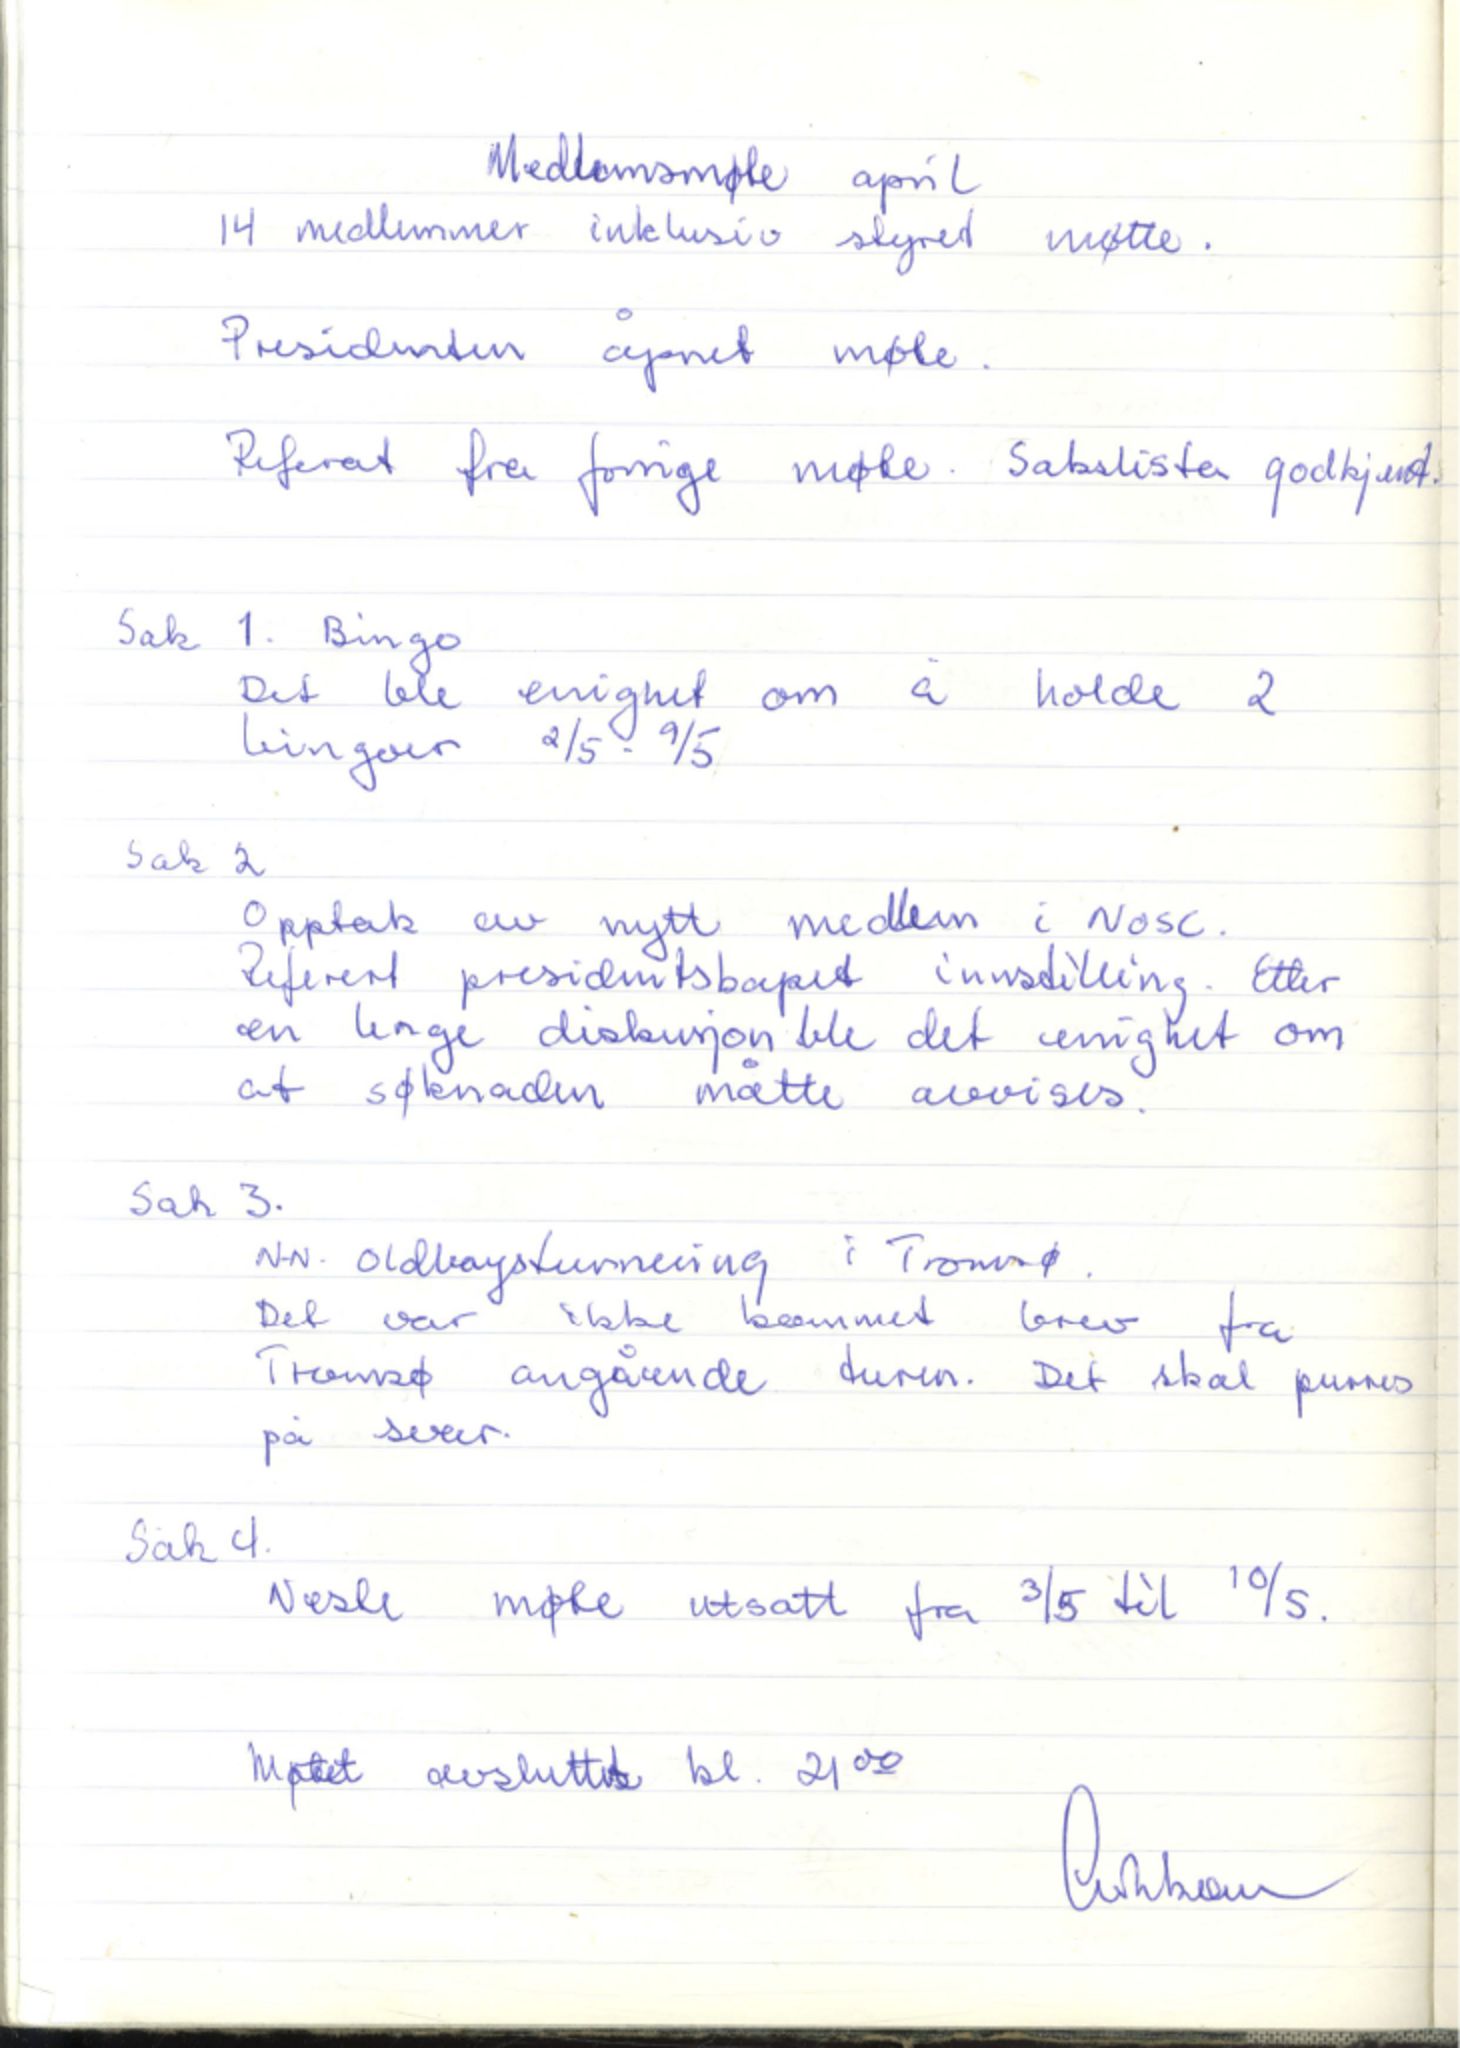 Medlemsmøte april
14 medlemmer inklusiv styret møtte.
Presidenten åpnet møte.
Referat fra forrige møte. Sakslista godkjent.
Sak 1. Bingo
Det ble enighet om å holde 2
bingoer 2/5 - 9/5
Sak 2
Opptak av nytt medlem i NOSC.
Referert presidentskapet innstilling. Etter
en lenge diskusjon ble det enighet om
at søknaden måtte avvises.
Sak 3.
N.N. Oldboysturnering i Tromsø.
Det var ikke kommet brev fra
Tromsø angående turen. Det skal purres
på svar.
Sak 4.
Neste møte utsatt fra 3/5 til 10/5.
Møtet avsluttet kl. 21 00